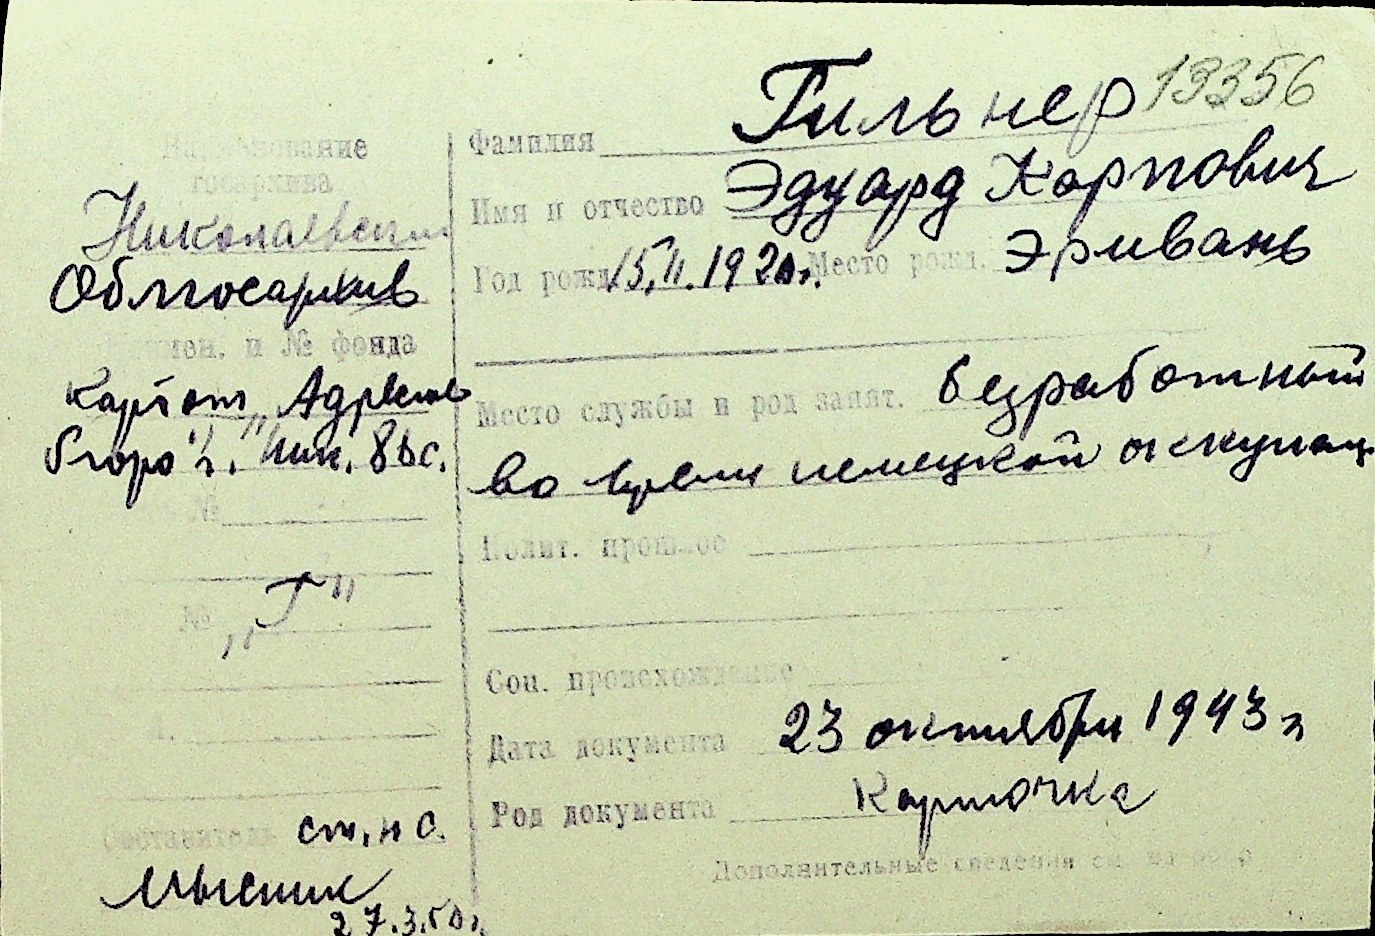 19356
Фамилия Гильнер
Имя и отчество Эдуард Карпович
Год рожд. 15.II.1920г. Место рожд. Эривань
Место службы и род занят. безработный
во время немецкой оккупац.
Полит. прошлое
Соц. происхождение
Дата документа 23 октября 1943 г
Род документа Карточка
Дополнительные сведения см. на обор
Наименование
госархива
Николаевский
Облгосархив
Наимен. и № фонда
Картот „Адресное
бюро" г. Ник.
№
№ „Г"
4.
Составитель ст. н с.
Мысник
27.3.50г.